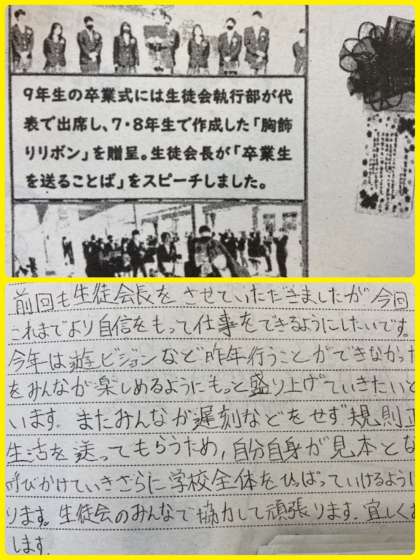 9年生の卒業式には生徒会執行部が代
表で出席し、7・8年生で作成した「胸飾
りリボン」を贈呈。生徒会長が「卒業生
を送ることば」をスピーチしました。
前回も生徒会長をさせていただきましたが今回
これまでより自信をもって仕事をできるようにしたいです。
今年は遊ビジョンなど昨年行うことができなかった
をみんなが楽しめるようにもっと盛り上げていきたいと
います。またみんなが遅刻などをせず規則正
生活を送ってもらうため,自分自身が見本とな
呼びかけていきさらに学校全体をひっぱっていけるように
ります。生徒会のみんなで協力して頑張ります。宜しくお
します。